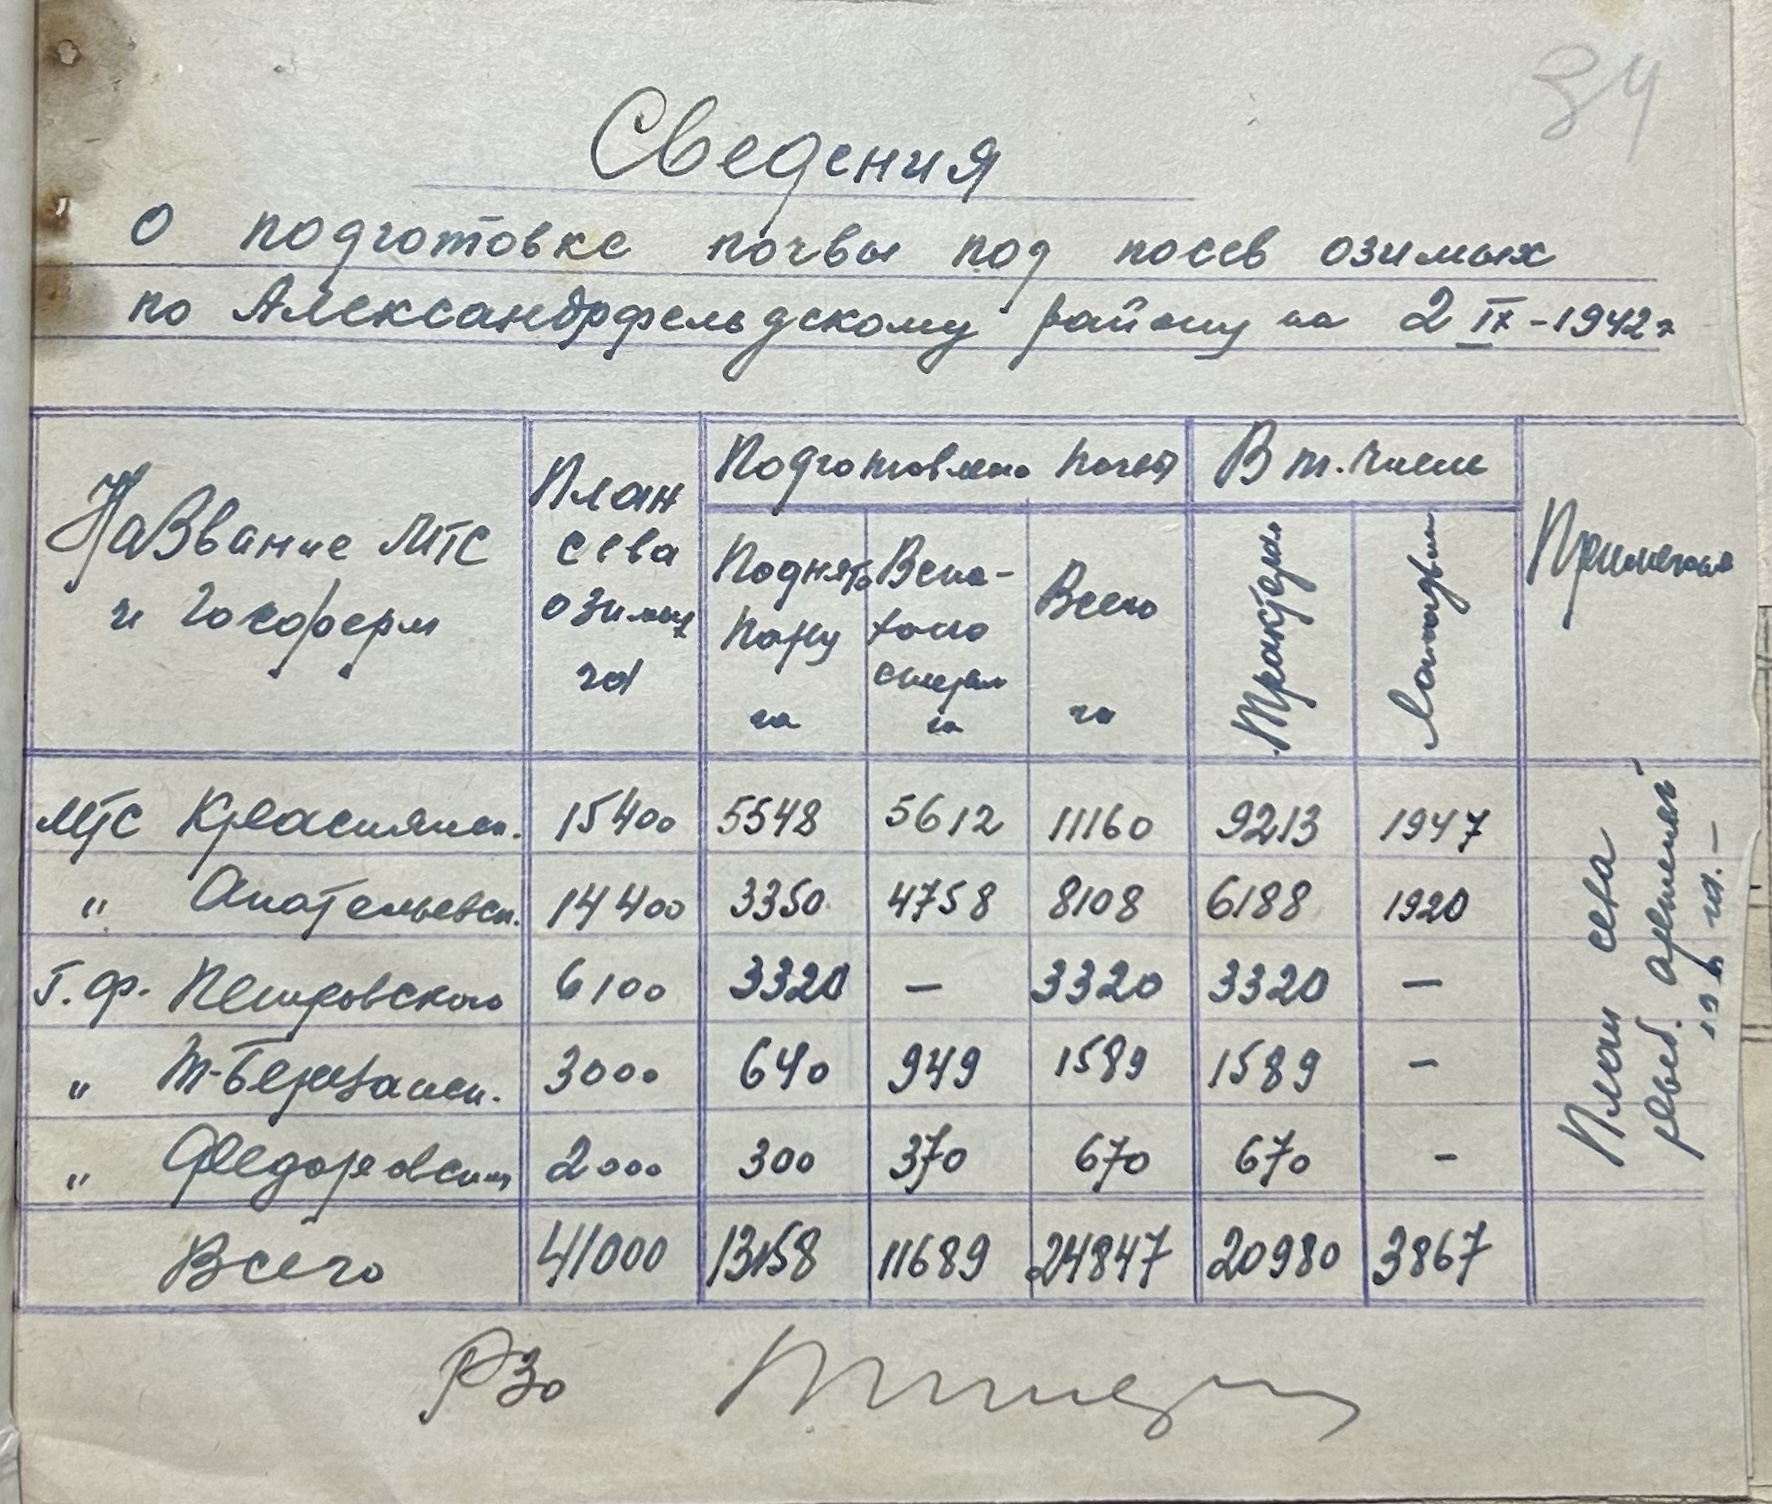 84
Сведения
О подготовке почвы под посев озимых
по Александрфельдскому району на 2 IX - 1942 г
Название МТС
и Госферм
План
сева
озимых
га
Подготовлено почвы
Поднято
пару
га
Вспа-
хано
га
Всего
га
В т. числе
Тракторами
Лошадьми
Примечание
МТС 15400 5548 5612 11160 9213 1947
" 14400 3350 4758 8108 6188 1920
Г.Ф. Петровского 6100 3320 – 3320 3320 –
" Т-Березанск. 3000 640 949 1589 1589 –
" Федоровский 2000 300 370 670 670 -
Всего 41000 13158 11689 24847 20980 3867
План сева
РЗО